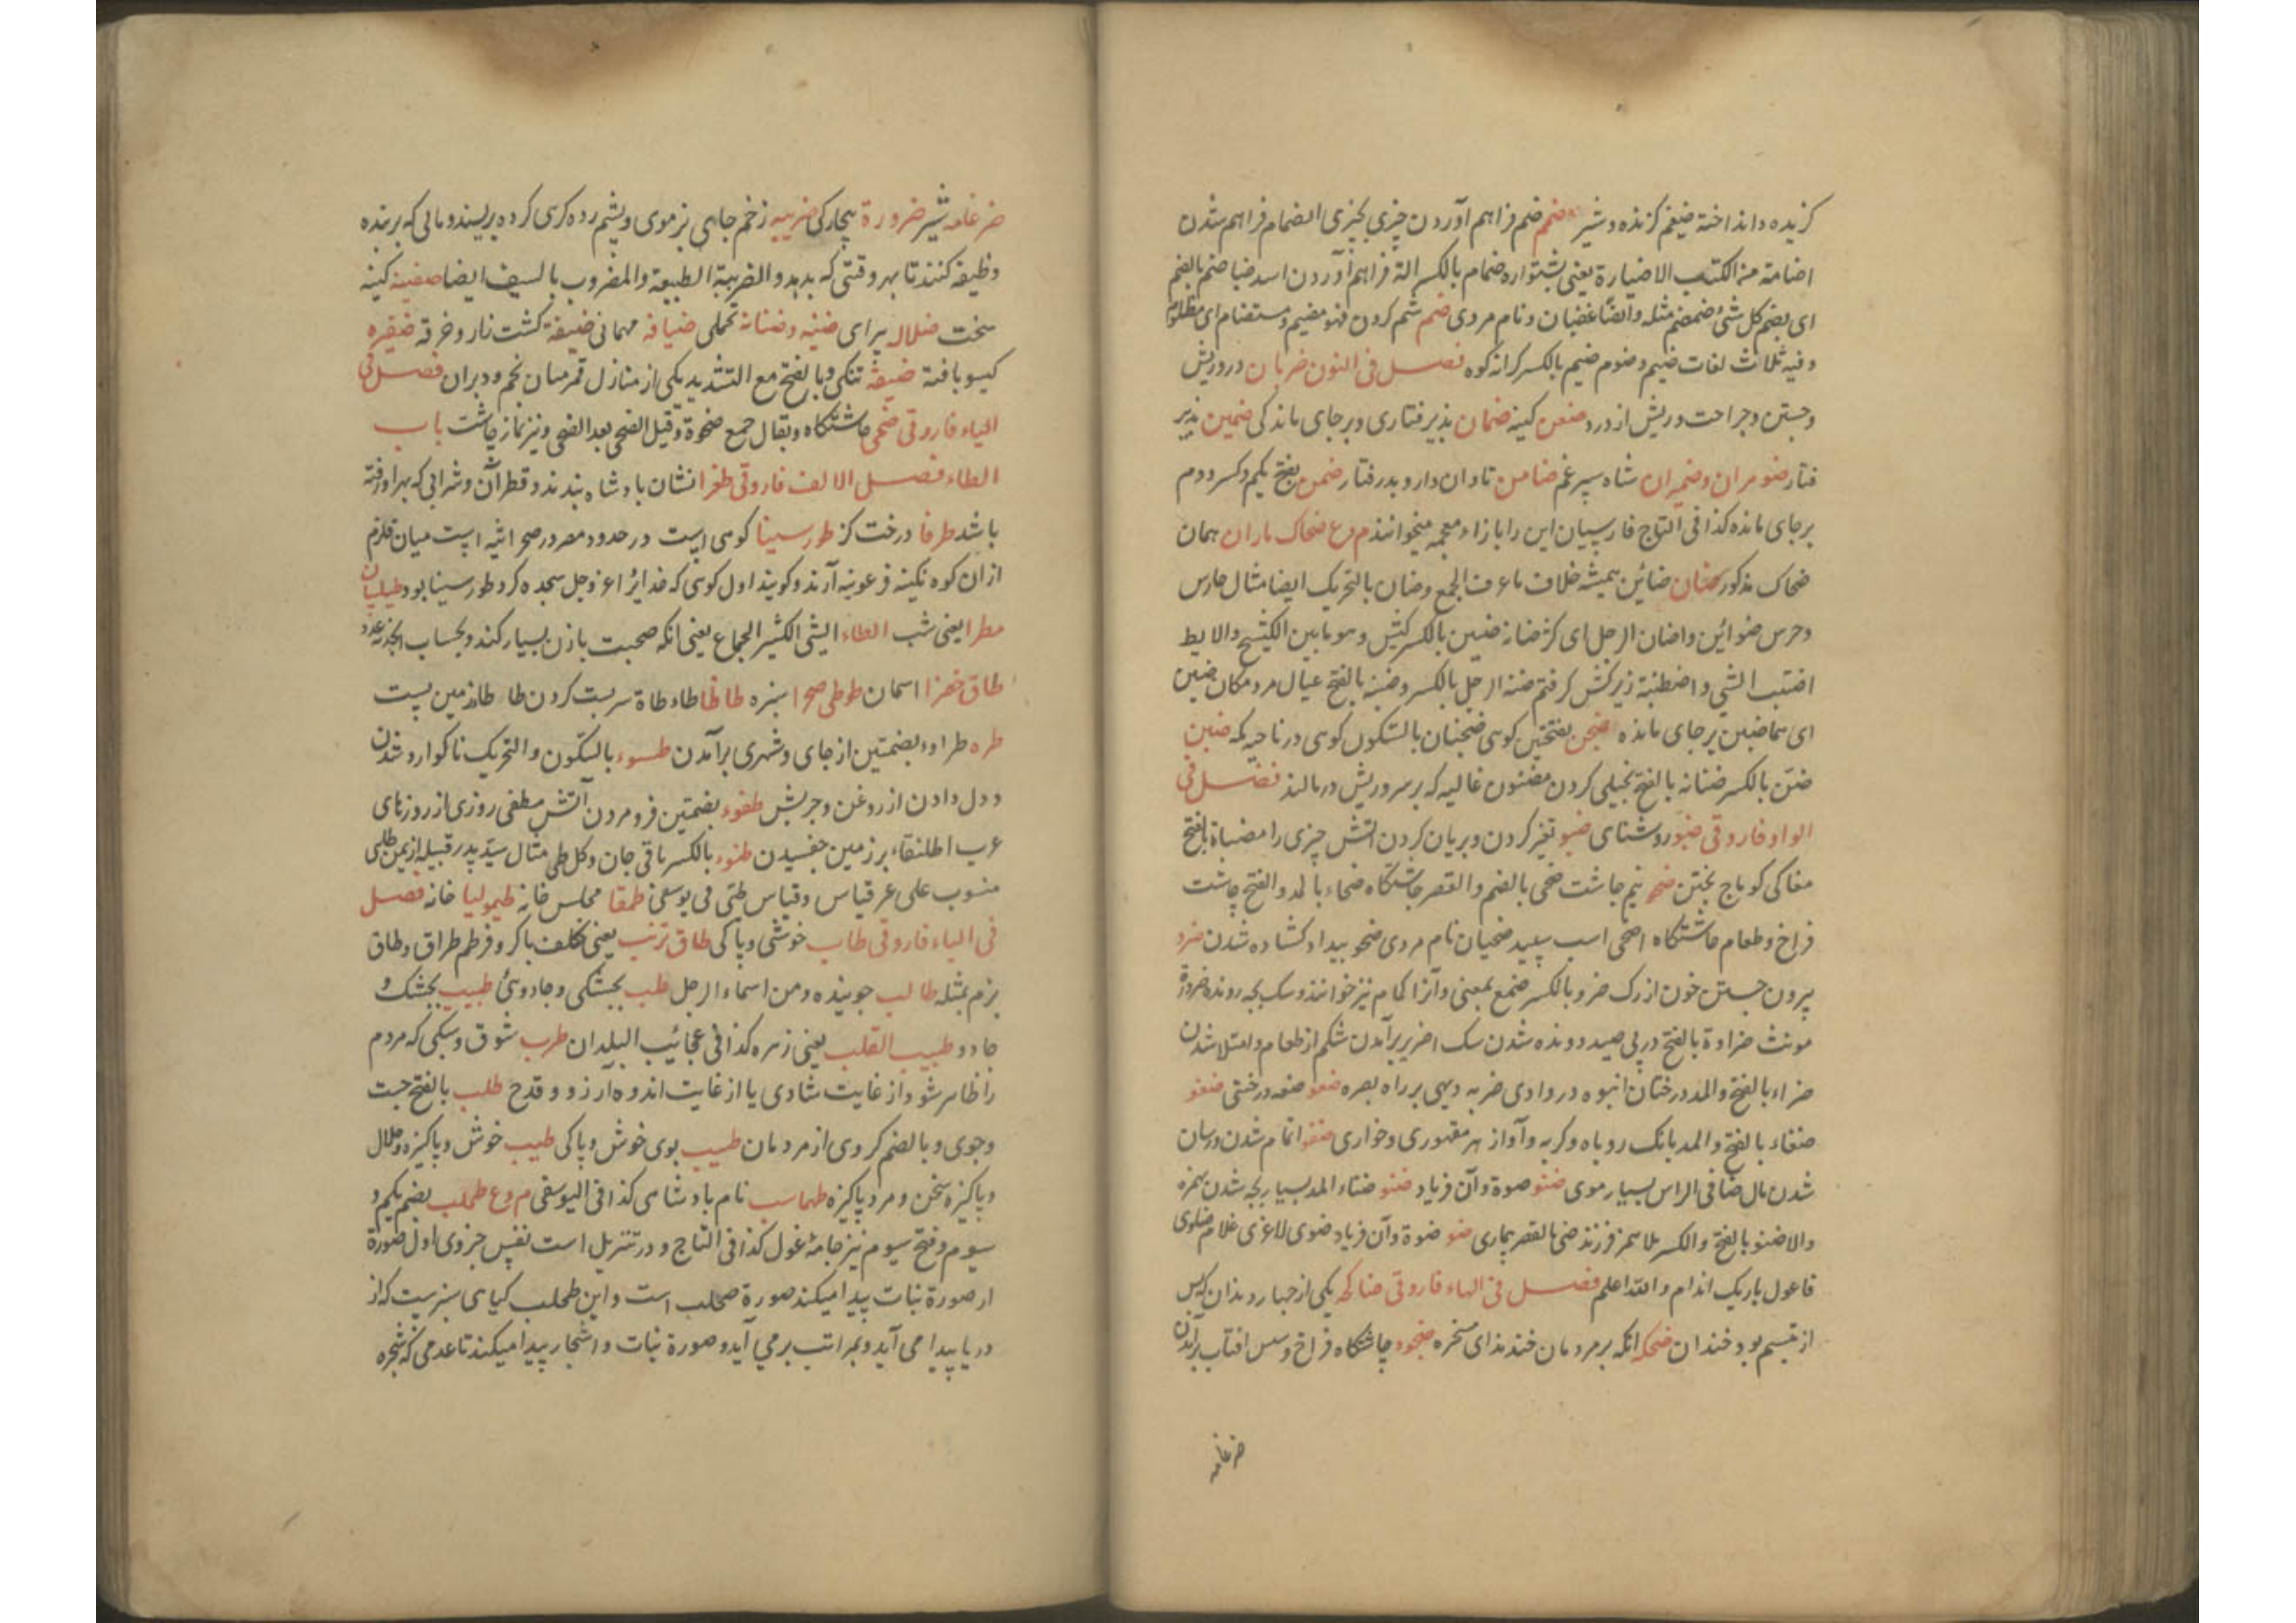 گزیده و انداخته ضیغم گزنده و شیر ضم ضم فراهم آوردن چیزی بچیزی انضمام فراهم شدن
اضامة من الکتب الاضبارة یعنی پشتواره ضمام بالکسر الة فراهم آوردن اسد ضباضم بالضم
ای یضم کل شیٔ ضمضم مثله وایضًا غضبان و نام مردی ضیم ستم کردن فهو مضیم و مستضام ای مظلوم
و فیه ثلاث لغات ضیم و ضوم ضیم بالکسر کرانه کوه فصل فی النون ضربان درد ریش
و جستن و جراحت و ریش از درد ضغن کینه ضمان پذیرفتاری و برجای ماندگی ضمین پذیر
فتار ضومران و ضمیران شاه سپرغم ضامن تاوان دار و پدرفتار ضمن بفتح یکم و کسر دوم
برجای مانده کذا فی التاج فارسیان این را بازاء معجمه میخوانند م وع ضحاک ماران همان
ضحاک مذکور ضان ضائن میشه خلاف ماعز الجمع و ضان بالتحریک ایضا مثال حارس
و حرس ضوائن و اضان الرجل ای کثر ضانه ضبن بالکسر کش و هو مابین الکشح والابط
اضتبت الشی و اضطبنته زیر کش گرفتم ضبنة الرجل بالکسر و ضبنة بالفتح عیال مرد مکان ضبن
ای برجای مانده ضجن بفتحتین کوهی ضجنان بالسکون کوهی در ناحیه مکه ضنین
ضن بالکسر ضنانه بالفتح بخیلی کردن مضنون غالیه که بر سر و ریش درمالند فصل فی
الواو فاروقی ضوء روشنائی ضبو تغیر کردن و بریان کردن آتش چیزی را مضباة بالفتح
مغاکی کوماج پختن ضحو نیم چاشت ضحی بالضم والقصر چاشتگاه ضحاء بالمد والفتح چاشت
فراخ و طعام چاشتگاه اضحی اسب سپید ضحیان نام مردی ضحو بیداد کشاده شدن ضرو
بیرون جستن خون از رگ ضرو بالکسر ضمغ بمعنی و آنرا کمام نیز خوانند و سگ بچه رونده ضروة
مونث ضراوة بالفتح در پی صید دونده شدن سگ اضریر برآمدن شکم از طعام و امتلا شدن
ضراء بالفتح والمد درختان انبوه در وادی ضریه دیهی بر راه بصره ضعو ضعه درختی ضغو
ضغاء بالفتح والمد بانگ روباه و گربه و آواز هر مقهوری و خواری ضفو تمام شدن و رسان
شدن مال ضافی الراس بسیار موی ضنو ضوة و آن فریاد ضنو ضناء المد بسیار بچه شدن بهره
والاضنو بالفتح والکسر بلا همز فرزند ضنی بالقصر بیماری ضو ضوة و آن فریاد ضوی لاغری غلام ضاوی
فاعول باریک اندام والله اعلم فصل فی الهاء فاروقی ضاحکه یکی از چهار دندان که پس
از تبسم بود خندان ضحکه آنکه بر مردمان خندد ای سخره ضحوه چاشتگاه فراخ و پس آفتاب برآمدن
ضرغامه
ضرغامه شیر ضرورة بیچارگی ضریبه زخم جاهی بز موی و پشم رده کرسی کرده بریسند و مالی که بر بنده
وظیفه کنند تا بهر وقتی که بدهد والضریبة الطبیعة والمضروب بالسیف ایضا ضغینه کینه
سخت ضلاله بی رای ضنه و ضنانة بخیلی ضیافة مهمانی ضیعة کشت زار و حرفه ضفیره
گیسو بافته ضیقة تنگی و بالفتح مع التشدید یکی از منازل قمر میان نجم و دبران فصل فی
الیاء فاروقی ضحی چاشتگاه و یقال جمع ضحوة و قیل الضحی بعد الضحی و نیز نماز چاشت باب
الطاء فصل الالف فاروقی طغرا نشان پادشاه بندند و قطر آن و شرابی که بهراورفته
باشد طرفا درخت گز طور سینا کوهی است در حدود مصر در صحرا تیه است میان قلزم
ازان کوه نگینه فرعونیه آرند و گویند اول کوهی که خدایرا عز وجل سجده کرد طور سینا بود طیلسان
مطرا یعنی شب الطاء الشی الکثیر الجماع یعنی آنکه صحبت بازن بسیار کند و بحساب ابجد نه عدد
طاق خضرا آسمان طوطی صحرا سبزه طاطا طاء طاة سر پست کردن طا طا زمین پست
طره طراوء بضمتین از جای و شهری برآمدن طسوء بالسکون والتحریک ناگوارد شدن
و دل دادن از روغن و چربش طفوء بضمتین فرو مردن آتش مطفی روزی از روزهای
عرب اطلنقاء بر زمین چفسیدن طنوء بالکسر باقی جان و کل طی مثال سید پدر قبیله از یمن طائی
منسوب علی غیر قیاس و قیاس طئی فی یوسفی طمقا مجلس خانه طیمولیا خانه فصل
فی الباء فاروقی طاب خوشی و پاکی طاق ترنب یعنی تکلف باکر و فر طم طراق و طاق
بزم بمثله طالب جوینده و من اسماء الرجل طب بجشکی و جادوئی طبیب بجشک و
جادو طبیب القلب یعنی زمره کذا فی عجائب البلدان طرب شوق و سبکی که مردم
را ظاهر شود از غایت شادی یا از غایت اندوه و آرزو و قدح طلب بالفتح جست
و جوی و بالضم گروهی از مردمان طیب بوی خوش و پاکی طیب خوش و پاکیزه و حلال
و پاکیزه سخن و مرد پاکیزه طهماسب نام پادشاهی کذا فی الیوسفی م وع طحلب بضم یکم و
سیوم و فتح سیوم نیز جامه غول کذا فی التاج و در تنزیل است نفس جزوی اول صورة
از صورة نبات پیدا میکند صورة طحلب است و این طحلب گیاهی سبزیست که از
دریا پیدا می آید و بمراتب برمی آید و صورة نبات و اشجار پیدا میکند تا عدمی که شجره